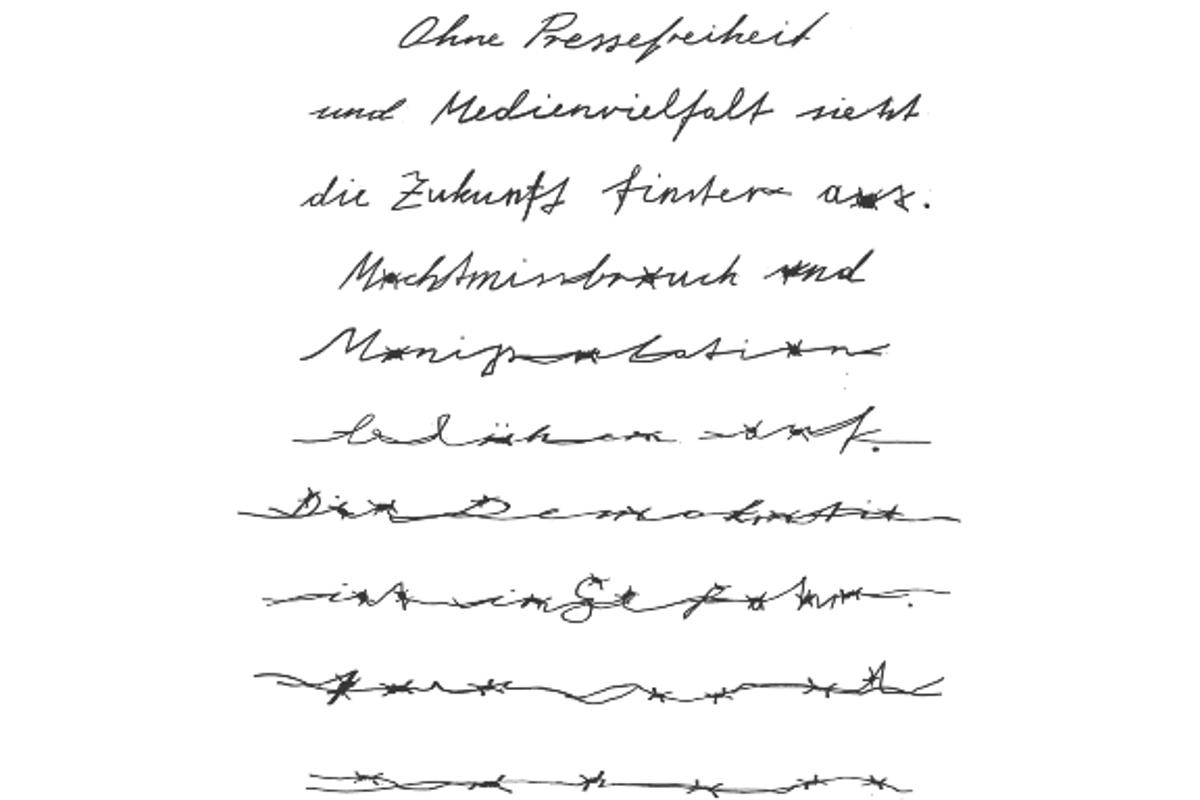 Ohne Pressefreiheit
und Medienvielfalt sieht
die Zukunft finster aus.
Machtmissbrauch und
Manipulation
blühen auf.
Die Demokratie
ist in Gefahr.